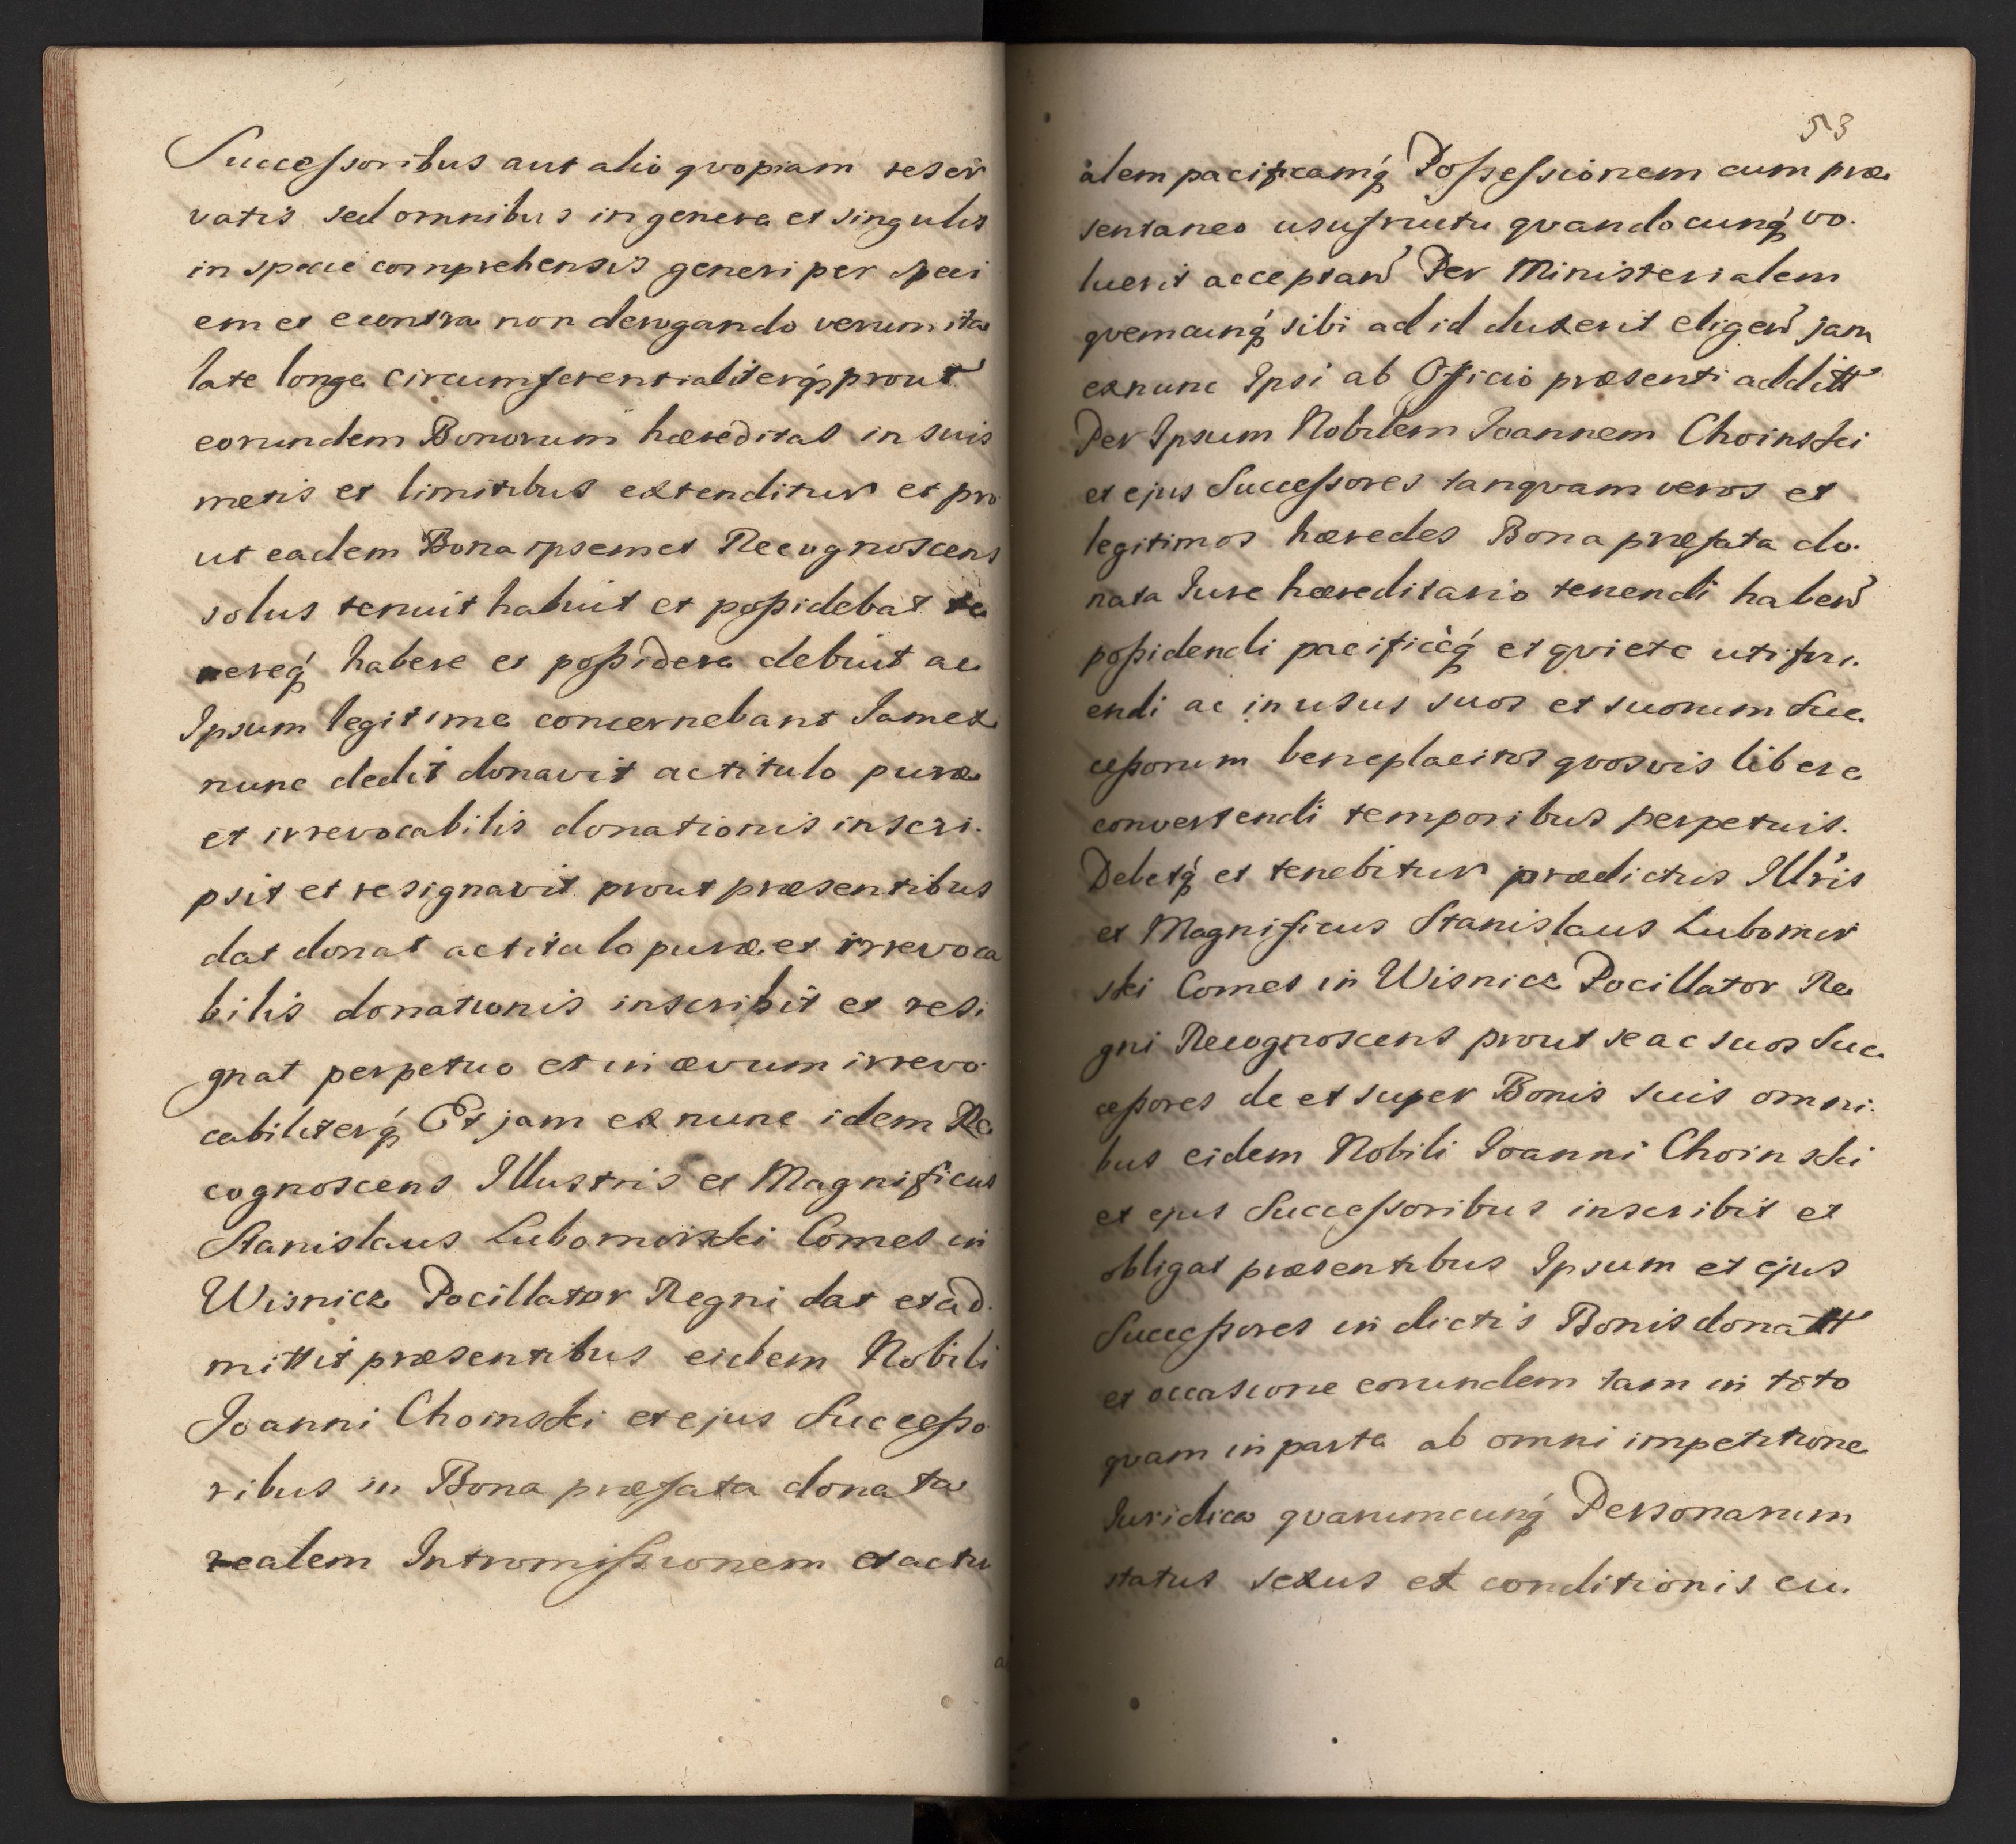 Successoribus aut alio qvopiam reser
vatis sed omnibus in genere et singulis
in specie comprehensis generi per speci
em et econtra non derogando verum ita
late longe circumferentialiterq́ prout
eorundem Bonorum hæreditas in suis
metis et limitibus extenditur et pro
ut eadem Bona ipsemet Recognoscens
solus tenuit habuit et possidebat te
nereq́ habere et possidere debuit ac
Ipsum legitime concernebant Iamex
nunc dedit donavit ac titulo puræ
et irrevocabilis donationis inscri.
psit et resignavit prout præsentibus
dat donat ac titulo puræ et irrevoca
bilis donationis inscribit et resi
gnat perpetuo et in ævum irrevo.
cabiliterq́ Et jam ex nunc idem Re
cognoscens Illustris et Magnificus
Stanislaus Lubomirski Comes in
Wisnicz Pocillator Regni dat et ad.
mittit præsentibus eidem Nobili
Joanni Choinski et ejus Successo
ribus in Bona præfata donata
realem Intromissionem et actu
53
alem pacificamq́ Possessionem cum præ
sentaneo usufructu qvandocunq́ vo.
luerit acceptañ Per Ministerialem
qvemcunq́ sibi ad id duxerit eligeñ jam
exnunc Ipsi ab Officio præsenti additt
Per Ipsum Nobilem Joannem Choinski
et ejus Successores tanqvam veros et
legitimos hæredes Bona præfata do.
nata Iure hæreditario tenendi habeñ
possidendi pacificèq́ et qviete uti fru.
endi ac in usus suos et suorum Suc
cessorum beneplacitos qvosvis libere
convertendi temporibus perpetuis.
Debetq́ et tenebitur prædictus Illr̃is
et Magnificus Stanislaus Lubomir
ski Comes in Wisnicz Pocillator Re
gni Recognoscens prout se ac suos Suc
cessores de et super Bonis suis omni.
bus eidem Nobili Joanni Choinski
et ejus Successoribus inscribit et
obligat præsentibus Ipsum et ejus
Successores in dictis Bonis donatt
et occasione eorundem tam in toto
qvam in parte ab omni impetitione
Iuridica qvarumcunq́ Personarum
status sexus et conditionis cu.